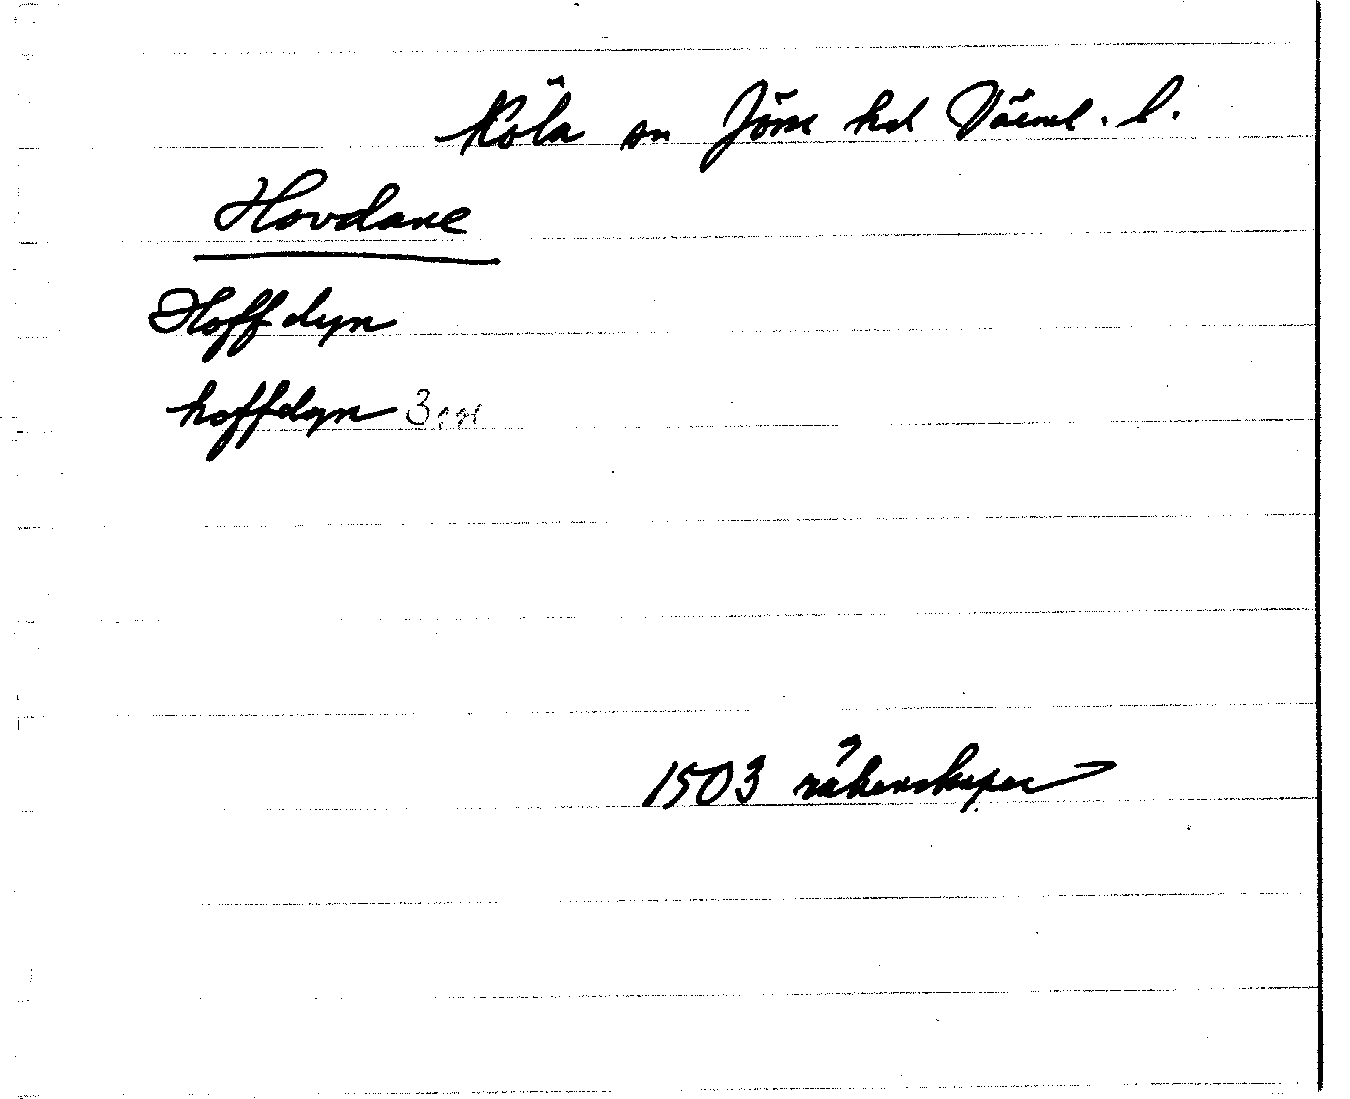 Köla sn Jösse hd Värml. l.
Hovdane
Hoffdyn
hoffdyn 3
1503 räkenskaper